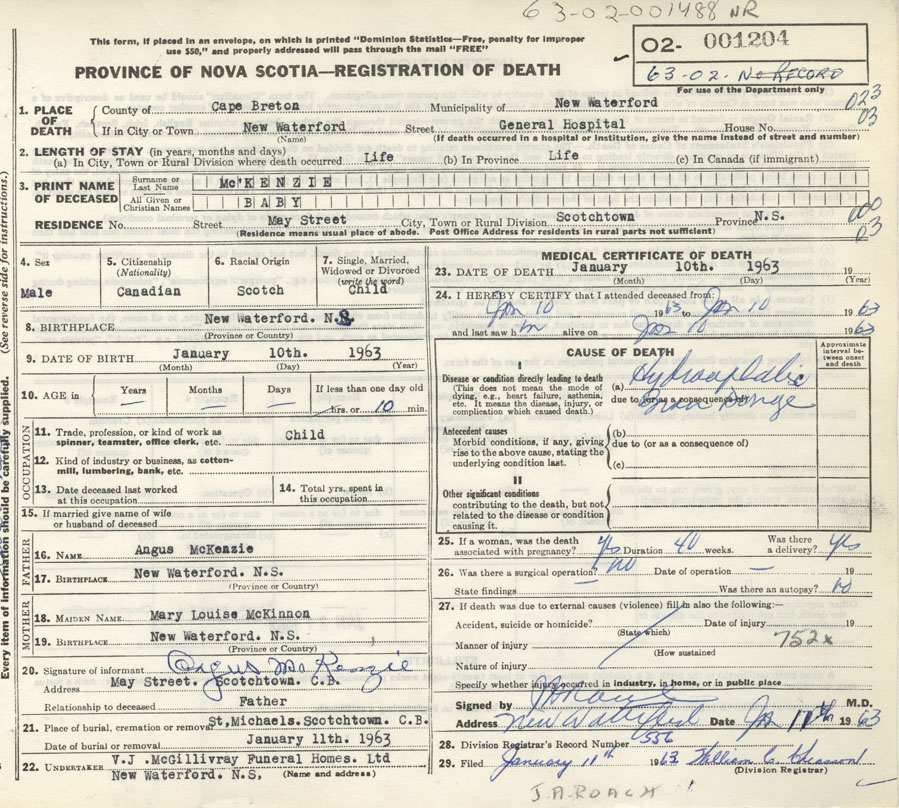 63-02-001488 NR
This form, if placed in an envelope, on which is printed "Dominion Statistics—Free, penalty for improper
use $50," and properly addressed will pass through the mail "FREE"
02- 001204
63-02. No RECORD
For use of the Department only
PROVINCE OF NOVA SCOTIA—REGISTRATION OF DEATH
023
03
1. PLACE OF DEATH
County of Cape Breton Municipality of New Waterford
If in City or Town New Waterford Street General Hospital House No.
(Name) (If death occurred in a hospital or institution, give the name instead of street and number)
2. LENGTH OF STAY (in years, months and days)
(a) In City, Town or Rural Division where death occurred Life (b) In Province Life (c) In Canada (if immigrant)
3. PRINT NAME OF DECEASED
Surname or Last Name McKENZIE
All Given or Christian Names BABY
RESIDENCE No. Street May Street City, Town or Rural Division Scotchtown Province N.S.
(Residence means usual place of abode. Post Office Address for residents in rural parts not sufficient)
000
03
4. Sex
Male
5. Citizenship
(Nationality)
Canadian
6. Racial Origin
Scotch
7. Single, Married,
Widowed or Divorced
(write the word)
Child
8. BIRTHPLACE New Waterford. N.S.
(Province or Country)
9. DATE OF BIRTH January 10th. 1963
(Month) (Day) (Year)
10. AGE in
Years Months Days If less than one day old
— — — hrs. or 10 min.
OCCUPATION
11. Trade, profession, or kind of work as
spinner, teamster, office clerk, etc. Child
12. Kind of industry or business, as cotton-
mill, lumbering, bank, etc.
13. Date deceased last worked
at this occupation
14. Total yrs. spent in
this occupation
15. If married give name of wife
or husband of deceased
FATHER
16. NAME Angus McKenzie
17. BIRTHPLACE New Waterford. N.S.
(Province or Country)
MOTHER
18. MAIDEN NAME Mary Louise McKinnon
19. BIRTHPLACE New Waterford. N.S.
(Province or Country)
20. Signature of informant Angus McKenzie
Address May Street. Scotchtown. C.B.
Relationship to deceased Father
21. Place of burial, cremation or removal St, Michaels. Scotchtown. C.B.
Date of burial or removal January 11th. 1963
22. UNDERTAKER V.J .McGillivray Funeral Homes. Ltd
New Waterford. N.S, (Name and address)
MEDICAL CERTIFICATE OF DEATH
23. DATE OF DEATH January 10th. 1963 19
(Month) (Day) (Year)
24. I HEREBY CERTIFY that I attended deceased from:
Jan 10 1963 to Jan 10 63
and last saw h m alive on Jan 10 1963
CAUSE OF DEATH
Approximate
interval be-
tween onset
and death
I
Disease or condition directly leading to death
(This does not mean the mode of
dying, e.g., heart failure, asthenia,
etc. It means the disease, injury, or
complication which caused death.)
(a) Hydrocephalic
due to (or as a consequence of)
Antecedent causes
Morbid conditions, if any, giving
rise to the above cause, stating the
underlying condition last.
(b)
due to (or as a consequence of)
(c)
II
Other significant conditions
contributing to the death, but not
related to the disease or condition
causing it.
25. If a woman, was the death
associated with pregnancy? yes Duration 40 weeks. Was there
a delivery? yes
26. Was there a surgical operation? no Date of operation — 19
State findings — Was there an autopsy? no
27. If death was due to external causes (violence) fill in also the following:—
Accident, suicide or homicide? Date of injury 19
(State which)
Manner of injury 752x
(How sustained
Nature of injury
Specify whether injury occurred in industry, in home, or in public place
Signed by M.D.
Address New Waterford Date Jan 11th 1963
28. Division Registrar's Record Number 556
29. Filed January 11th 1963 William C Chiasson
(Division Registrar)
J.A.ROACH
Every item of information should be carefully supplied. (See reverse side for instructions.)